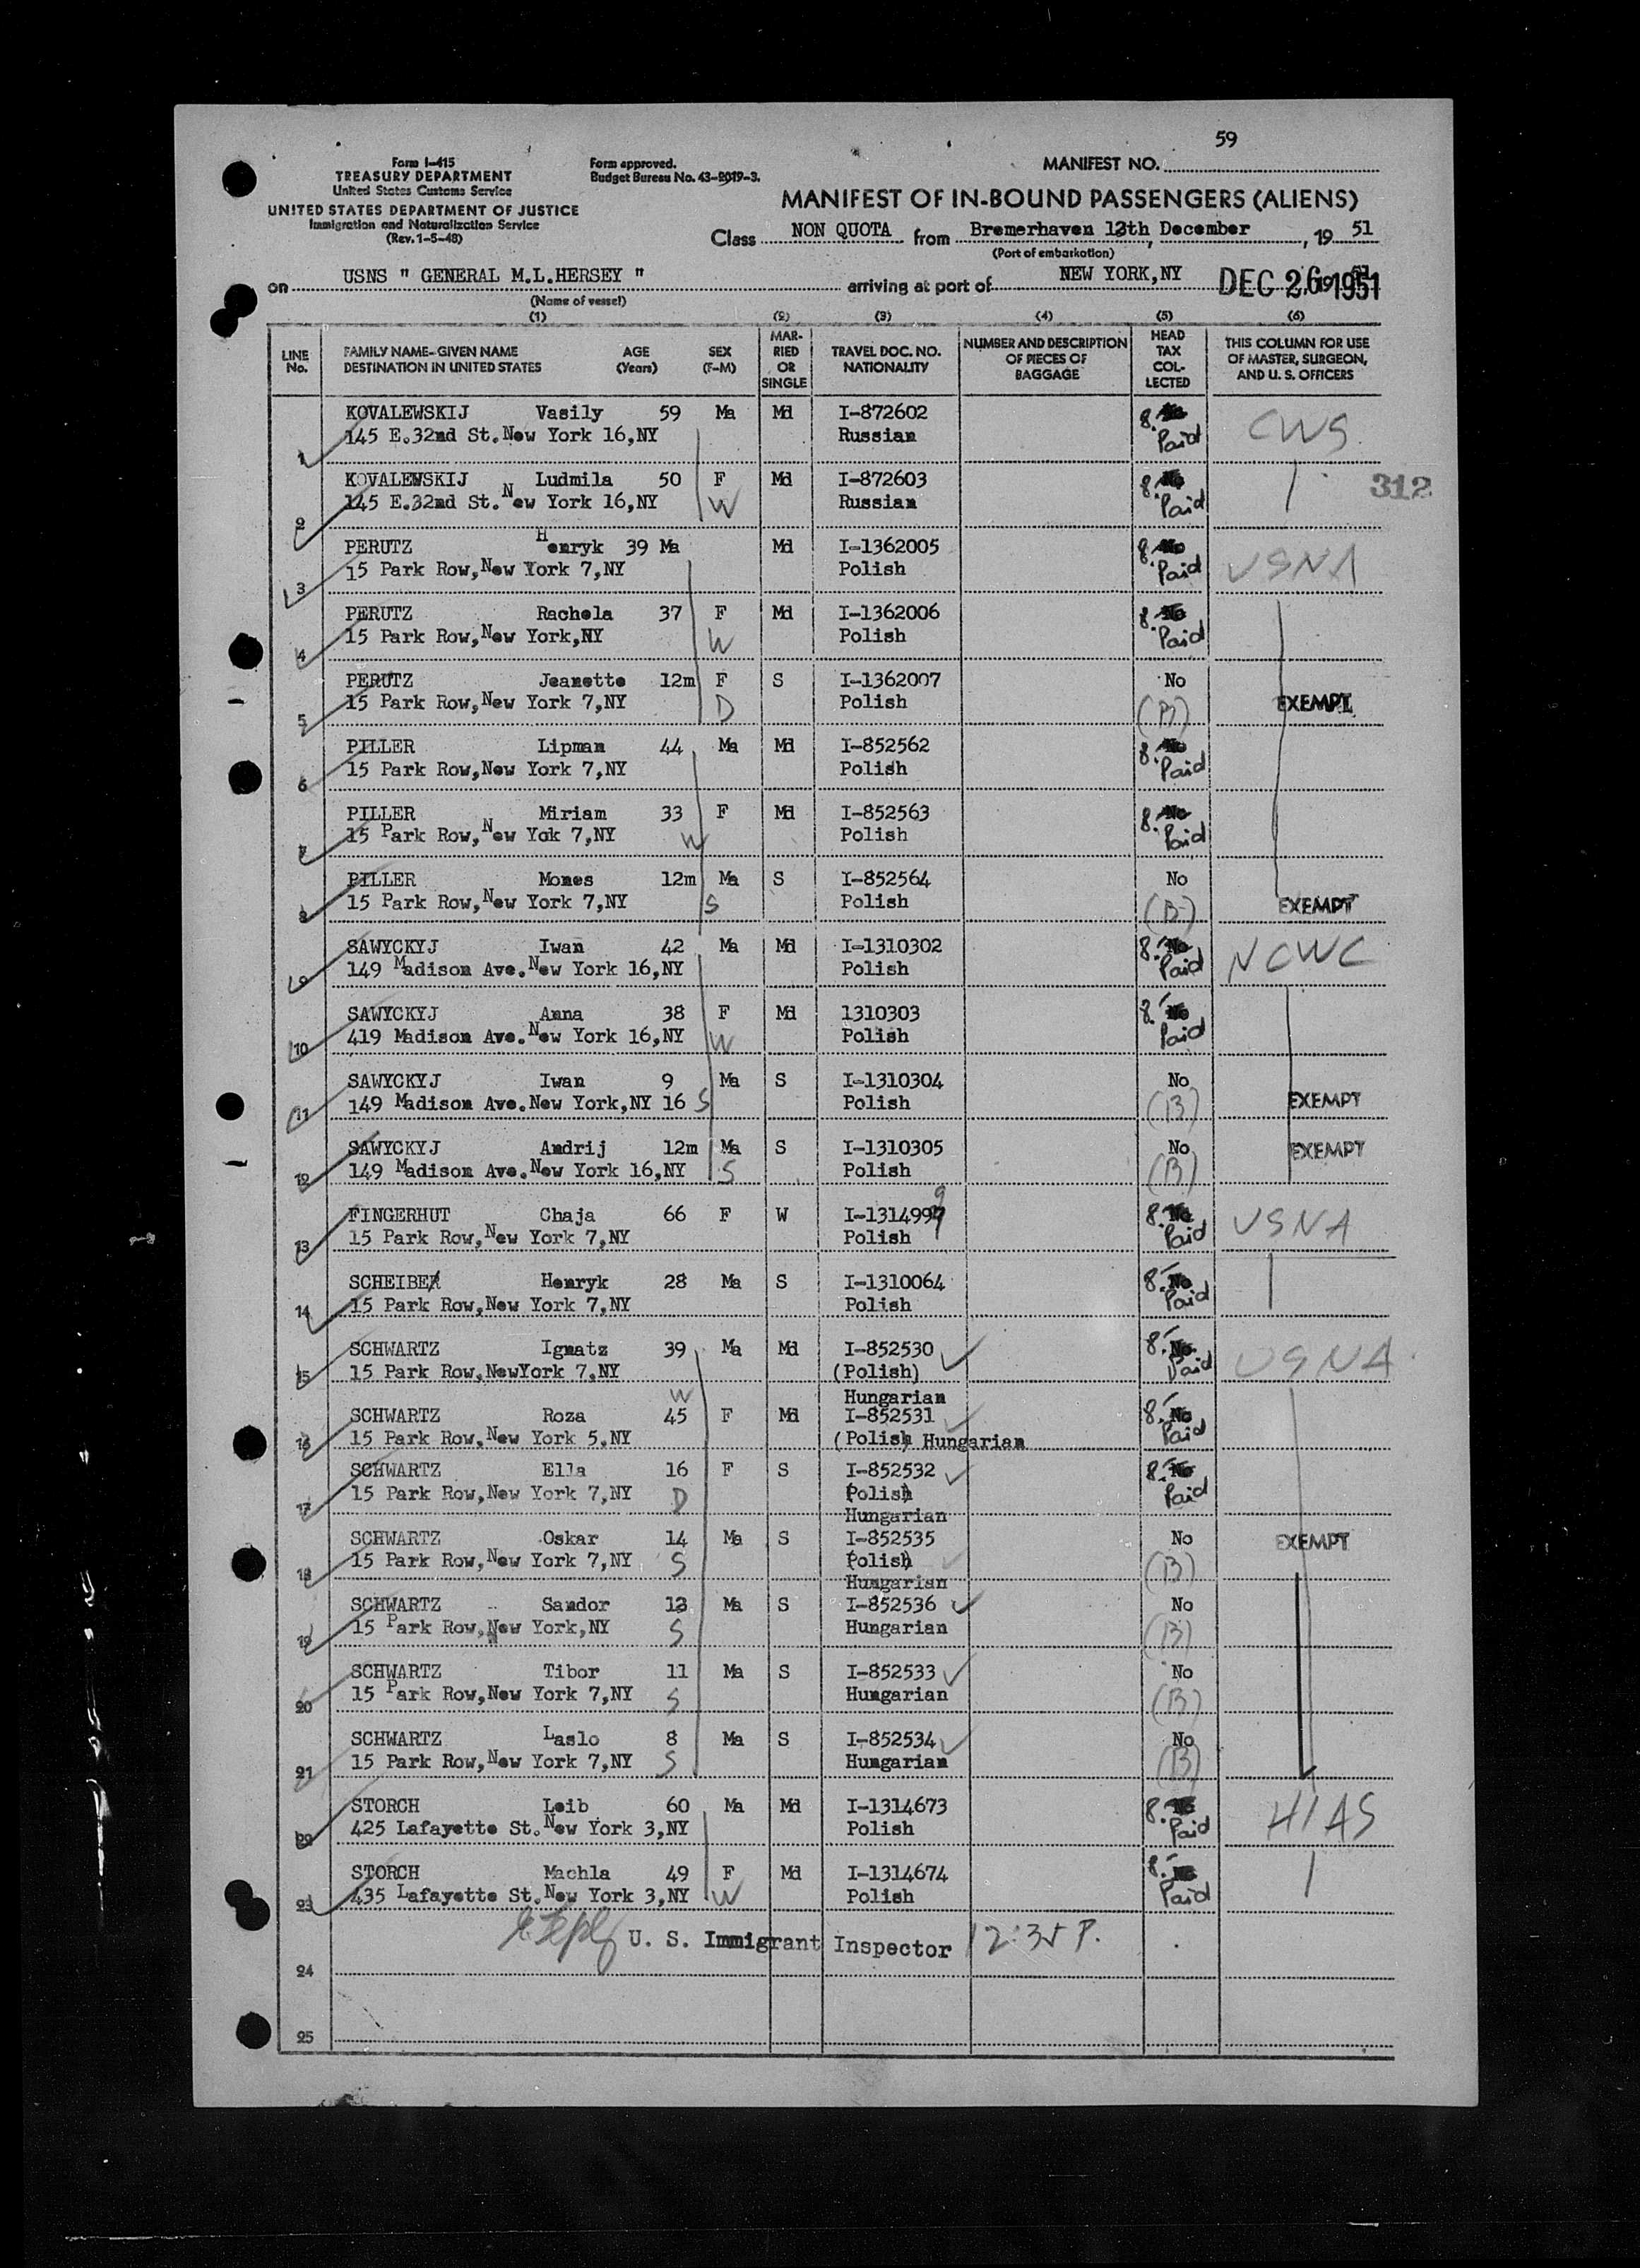 59
Form I-415
TREASURY DEPARTMENT
United States Customs Service
UNITED STATES DEPARTMENT OF JUSTICE
Immigration and Naturalization Service
(Rev. 1-5-48)
Form approved.
Budget Bureau No. 43-R019-3.
MANIFEST NO.
MANIFEST OF IN-BOUND PASSENGERS (ALIENS)
Class NON QUOTA from Bremerhaven 13th, December, 19 51
(Port of embarkation)
on USNS " GENERAL M.L.HERSEY " arriving at port of NEW YORK,NY DEC 26 1951
(Name of vessel)
(1) (2) (3) (4) (5) (6)
LINE No. FAMILY NAME-GIVEN NAME DESTINATION IN UNITED STATES AGE (Years) SEX (F-M) MARRIED OR SINGLE TRAVEL DOC. NO. NATIONALITY NUMBER AND DESCRIPTION OF PIECES OF BAGGAGE HEAD TAX COLLECTED THIS COLUMN FOR USE OF MASTER, SURGEON, AND U. S. OFFICERS
KOVALEWSKIJ Vasily 59 Ma Md I-872602 8. No CWS
1 145 E.32nd St.New York 16,NY Russian Paid
KOVALEWSKIJ Ludmila 50 F Md I-872603 8. No 312
2 145 E.32nd St.New York 16,NY W Russian Paid
PERUTZ Henryk 39 Ma Md I-1362005 8. No USNA
3 15 Park Row,New York 7,NY Polish Paid
PERUTZ Rachela 37 F Md I-1362006 8. No
4 15 Park Row,New York,NY W Polish Paid
PERUTZ Jeanette 12m F S I-1362007 No
5 15 Park Row,New York 7,NY D Polish (B) EXEMPT
PILLER Lipman 44 Ma Md I-852562 8. No
6 15 Park Row,New York 7,NY Polish Paid
PILLER Miriam 33 F Md I-852563 8. No
7 15 Park Row,New Yok 7,NY W Polish Paid
PILLER Mones 12m Ma S I-852564 No
8 15 Park Row,New York 7,NY S Polish (B) EXEMPT
SAWYCKYJ Iwan 42 Ma Md I-1310302 8. No NCWC
9 149 Madison Ave.New York 16,NY Polish Paid
SAWYCKYJ Anna 38 F Md 1310303 8. No
10 419 Madison Ave.New York 16,NY W Polish Paid
SAWYCKYJ Iwan 9 Ma S I-1310304 No
11 149 Madison Ave.New York,NY 16 S Polish (B) EXEMPT
SAWYCKYJ Andrij 12m Ma S I-1310305 No EXEMPT
12 149 Madison Ave.New York 16,NY S Polish (B)
FINGERHUT Chaja 66 F W I-1314999 8. No USNA
13 15 Park Row,New York 7,NY Polish Paid
SCHEIBER Henryk 28 Ma S I-1310064 8. No
14 15 Park Row,New York 7,NY Polish Paid
SCHWARTZ Ignatz 39 Ma Md I-852530 8. No USNA
15 15 Park Row,NewYork 7,NY (Polish) Paid
W Hungarian
SCHWARTZ Roza 45 F Md I-852531 8. No
16 15 Park Row,New York 5,NY (Polish) Hungarian Paid
SCHWARTZ Ella 16 F S I-852532 8. No
17 15 Park Row,New York 7,NY D (Polish) Paid
Hungarian
SCHWARTZ Oskar 14 Ma S I-852535 No EXEMPT
18 15 Park Row,New York 7,NY S (Polish) (B)
Hungarian
SCHWARTZ Sandor 13 Ma S I-852536 No
19 15 Park Row,New York,NY S Hungarian (B)
SCHWARTZ Tibor 11 Ma S I-852533 No
20 15 Park Row,New York 7,NY S Hungarian (B)
SCHWARTZ Laslo 8 Ma S I-852534 No
21 15 Park Row,New York 7,NY S Hungarian (B)
STORCH Leib 60 Ma Md I-1314673 8. No HIAS
22 425 Lafayette St.New York 3,NY Polish Paid
STORCH Machla 49 F Md I-1314674 8. No
23 435 Lafayette St.New York 3,NY W Polish Paid
U. S. Immigrant Inspector 12:35 P.
24
25